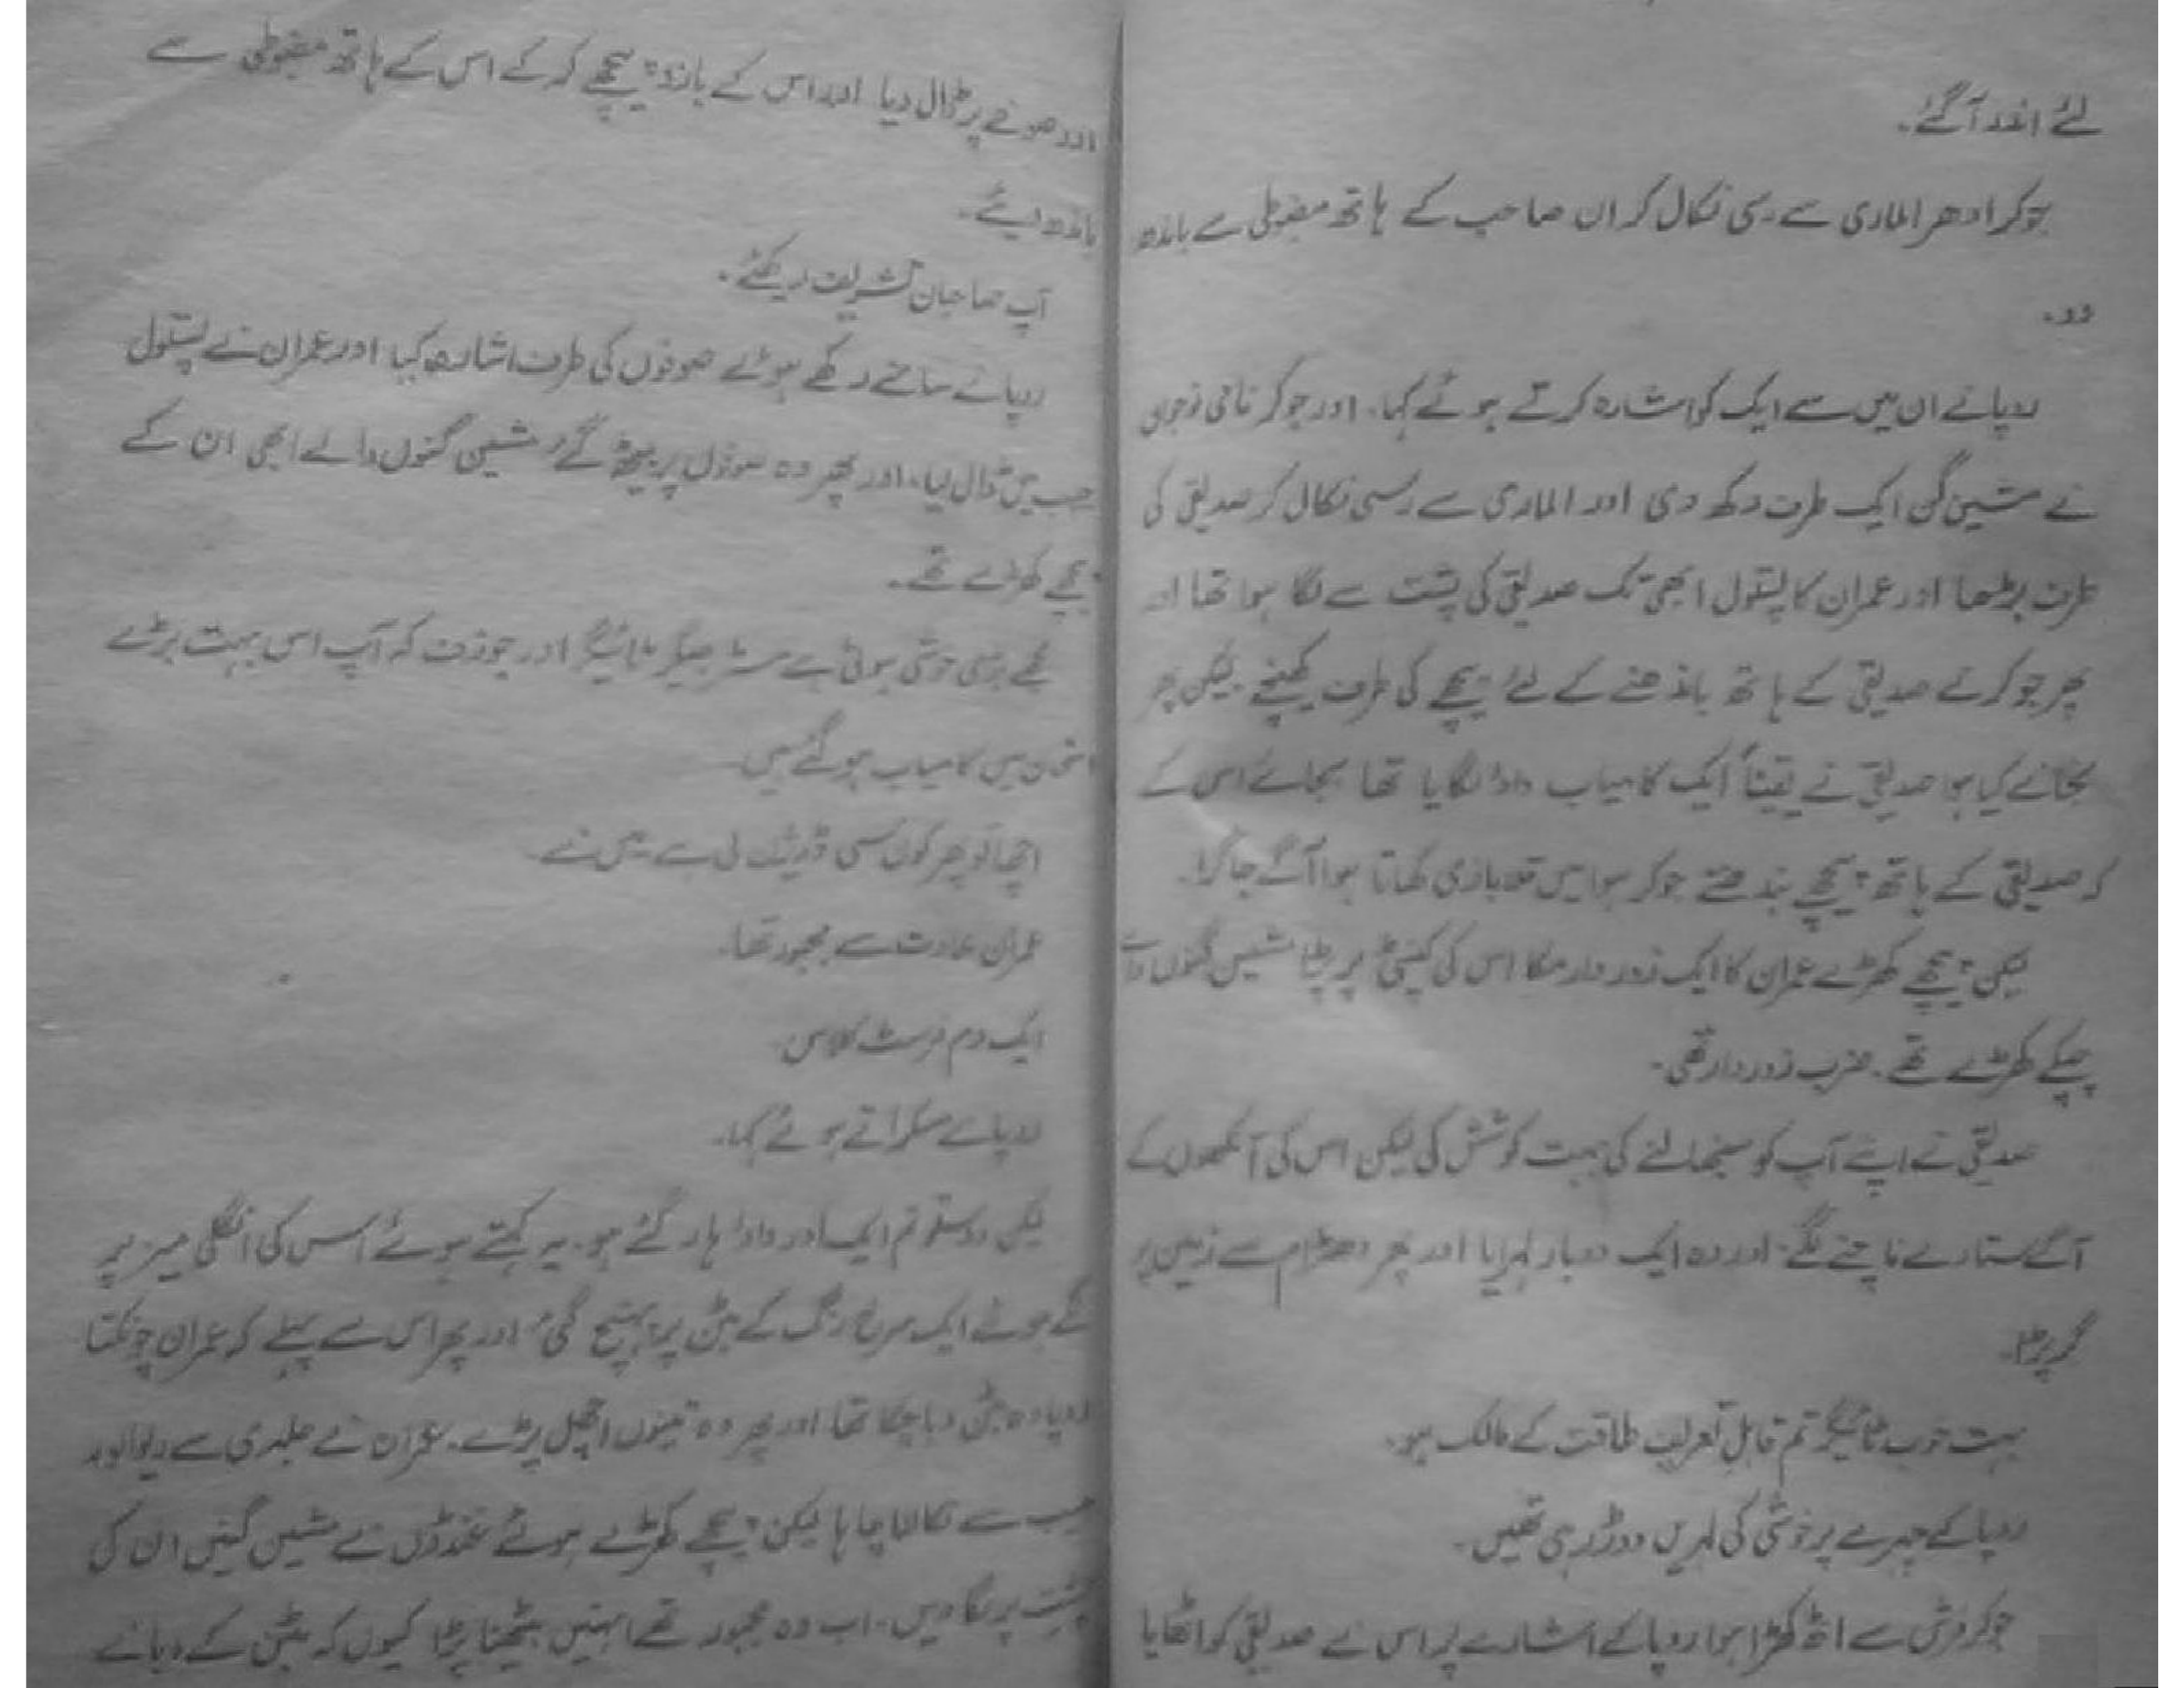 لئے اندر آگئے۔
جوکر ادھر الماری سے رسی نکال کر ان صاحب کے ہاتھ مضبوطی سے باندھ
دو۔
روپا نے ان میں سے ایک کو اشارہ کرتے ہوئے کہا۔ اور جوکر نامی نوجوان
نے مشین گن ایک طرف رکھ دی اور الماری سے رسی نکال کر صدیقی کی
طرف بڑھا اور عمران کا پستول ابھی تک صدیقی کی پشت سے لگا ہوا تھا اور
پھر جوکر نے صدیقی کے ہاتھ باندھنے کے لئے پیچھے کی طرف کھینچے لیکن پھر
نجانے کیا ہوا صدیقی نے یقیناً ایک کامیاب داؤ لگایا تھا بجائے اس کے
کہ صدیقی کے ہاتھ پیچھے بندھتے جوکر ہوا میں قلابازی کھاتا ہوا آگے جا گرا۔
لیکن پیچھے کھڑے عمران کا ایک زور دار مکا اس کی کنپٹی پر پڑا مشین گنوں والے
چپکے کھڑے تھے۔ ضرب زور دار تھی۔
صدیقی نے اپنے آپ کو سنبھالنے کی بہت کوشش کی لیکن اس کی آنکھوں کے
آگے ستارے ناچنے لگے۔ اور وہ ایک دو بار لہرایا اور پھر دھڑام سے زمین پر
گر پڑا۔
بہت خوب ٹائیگر تم قابل تعریف طاقت کے مالک ہو۔
روپا کے چہرے پر خوشی کی لہریں دوڑ رہی تھیں۔
جوکر فرش سے اٹھ کھڑا ہوا روپا کے اشارے پر اس نے صدیقی کو اٹھایا
اور صوفے پر ڈال دیا اور اس کے بازو پیچھے کر کے اس کے ہاتھ مضبوطی سے
باندھ دیئے۔
آپ صاحبان تشریف رکھئے۔
روپا نے سامنے رکھے ہوئے صوفوں کی طرف اشارہ کیا اور عمران نے پستول
جیب میں ڈال لیا، اور پھر وہ صوفوں پر بیٹھ گئے مشین گنوں والے ابھی ان کے
پیچھے کھڑے تھے۔
مجھے بڑی خوشی ہوئی ہے مسٹر ٹائیگر اور جوزف کہ آپ اس بہت بڑے
امتحان میں کامیاب ہو گئے ہیں
اچھا تو پھر کون سی ڈویژن لی ہے میں نے۔
عمران عادت سے مجبور تھا۔
ایک دم فرسٹ کلاس۔
روپا نے مسکراتے ہوئے کہا۔
لیکن دوستو تم ایک اور داؤ ہار گئے ہو۔ یہ کہتے ہوئے اس کی انگلی میز پر
لگے ہوئے ایک سرخ رنگ کے بٹن پر پہنچ گئی اور پھر اس سے پہلے کہ عمران چونکتا
روپا وہ بٹن دبا چکا تھا اور پھر وہ تینوں اچھل پڑے۔ عمران نے جلدی سے ریوالور
جیب سے نکالنا چاہا لیکن پیچھے کھڑے ہوئے غنڈوں نے مشین گنیں ان کی
پشت پر لگا دیں۔ اب وہ مجبور تھے انہیں بیٹھنا پڑا کیوں کہ بٹن کے دبانے